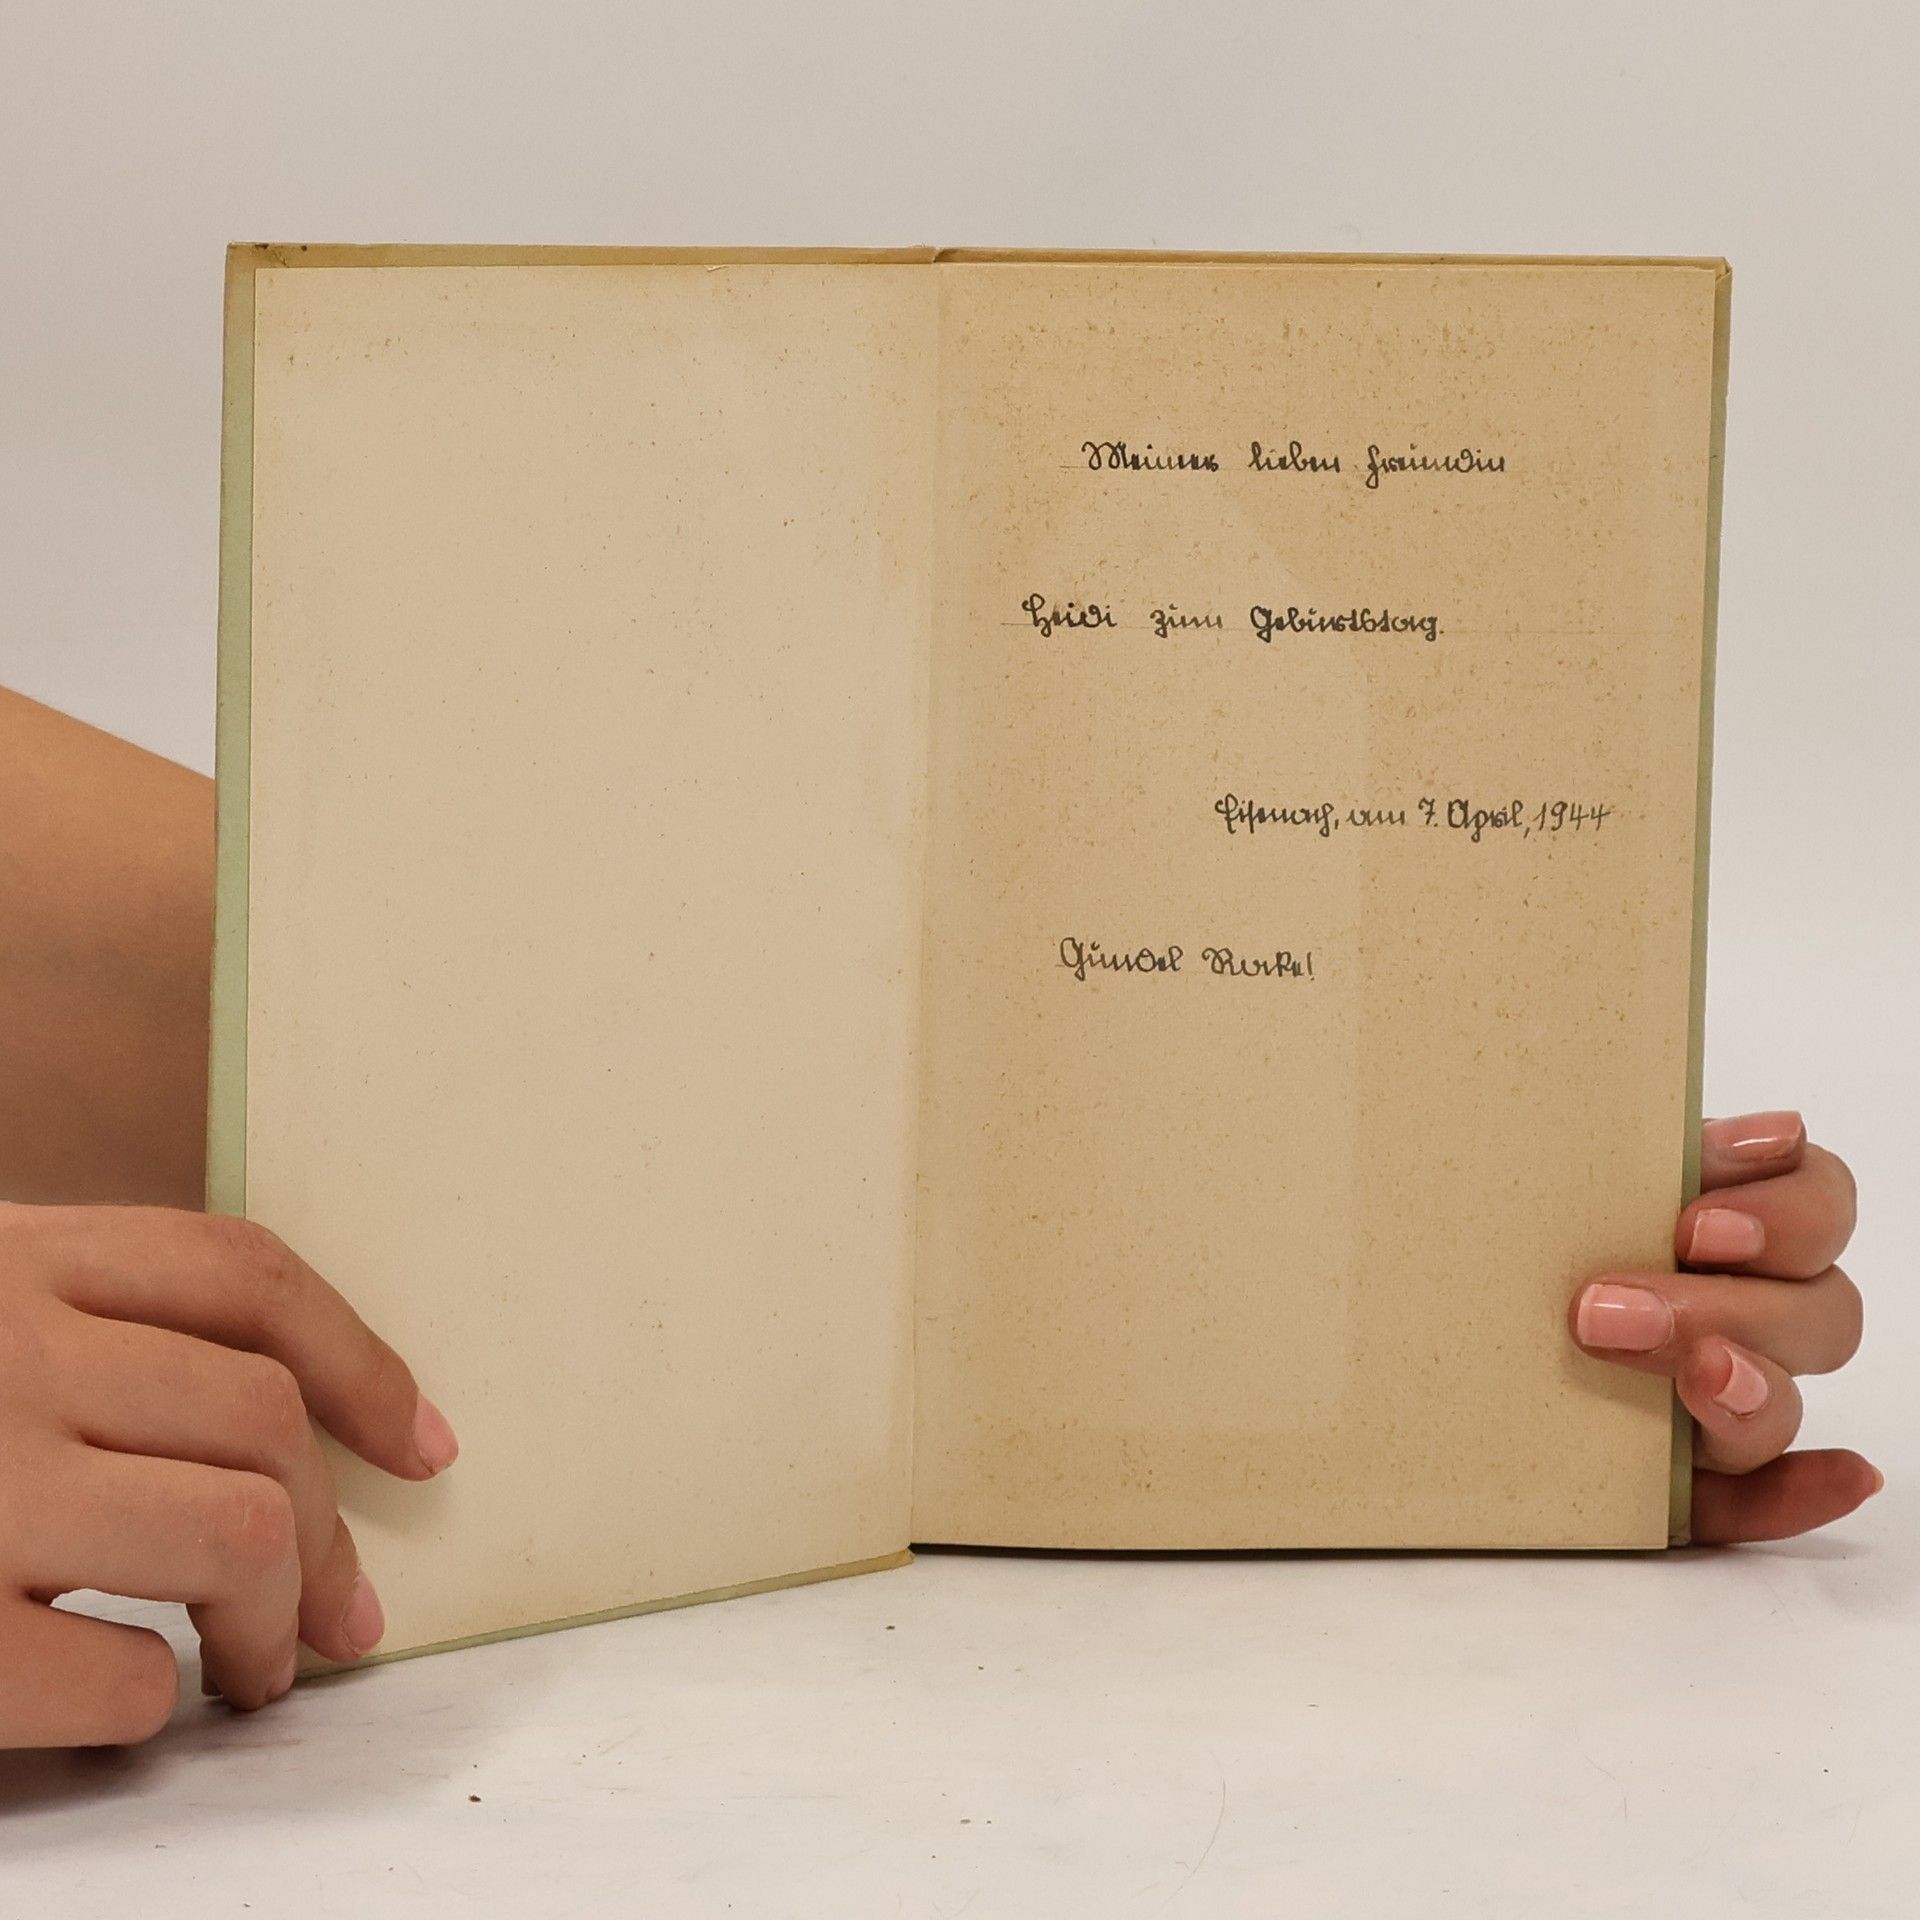 Meiner lieben Freundin
Heidi zum Geburtstag.
Eisenach, am 7. April, 1944
Gundel